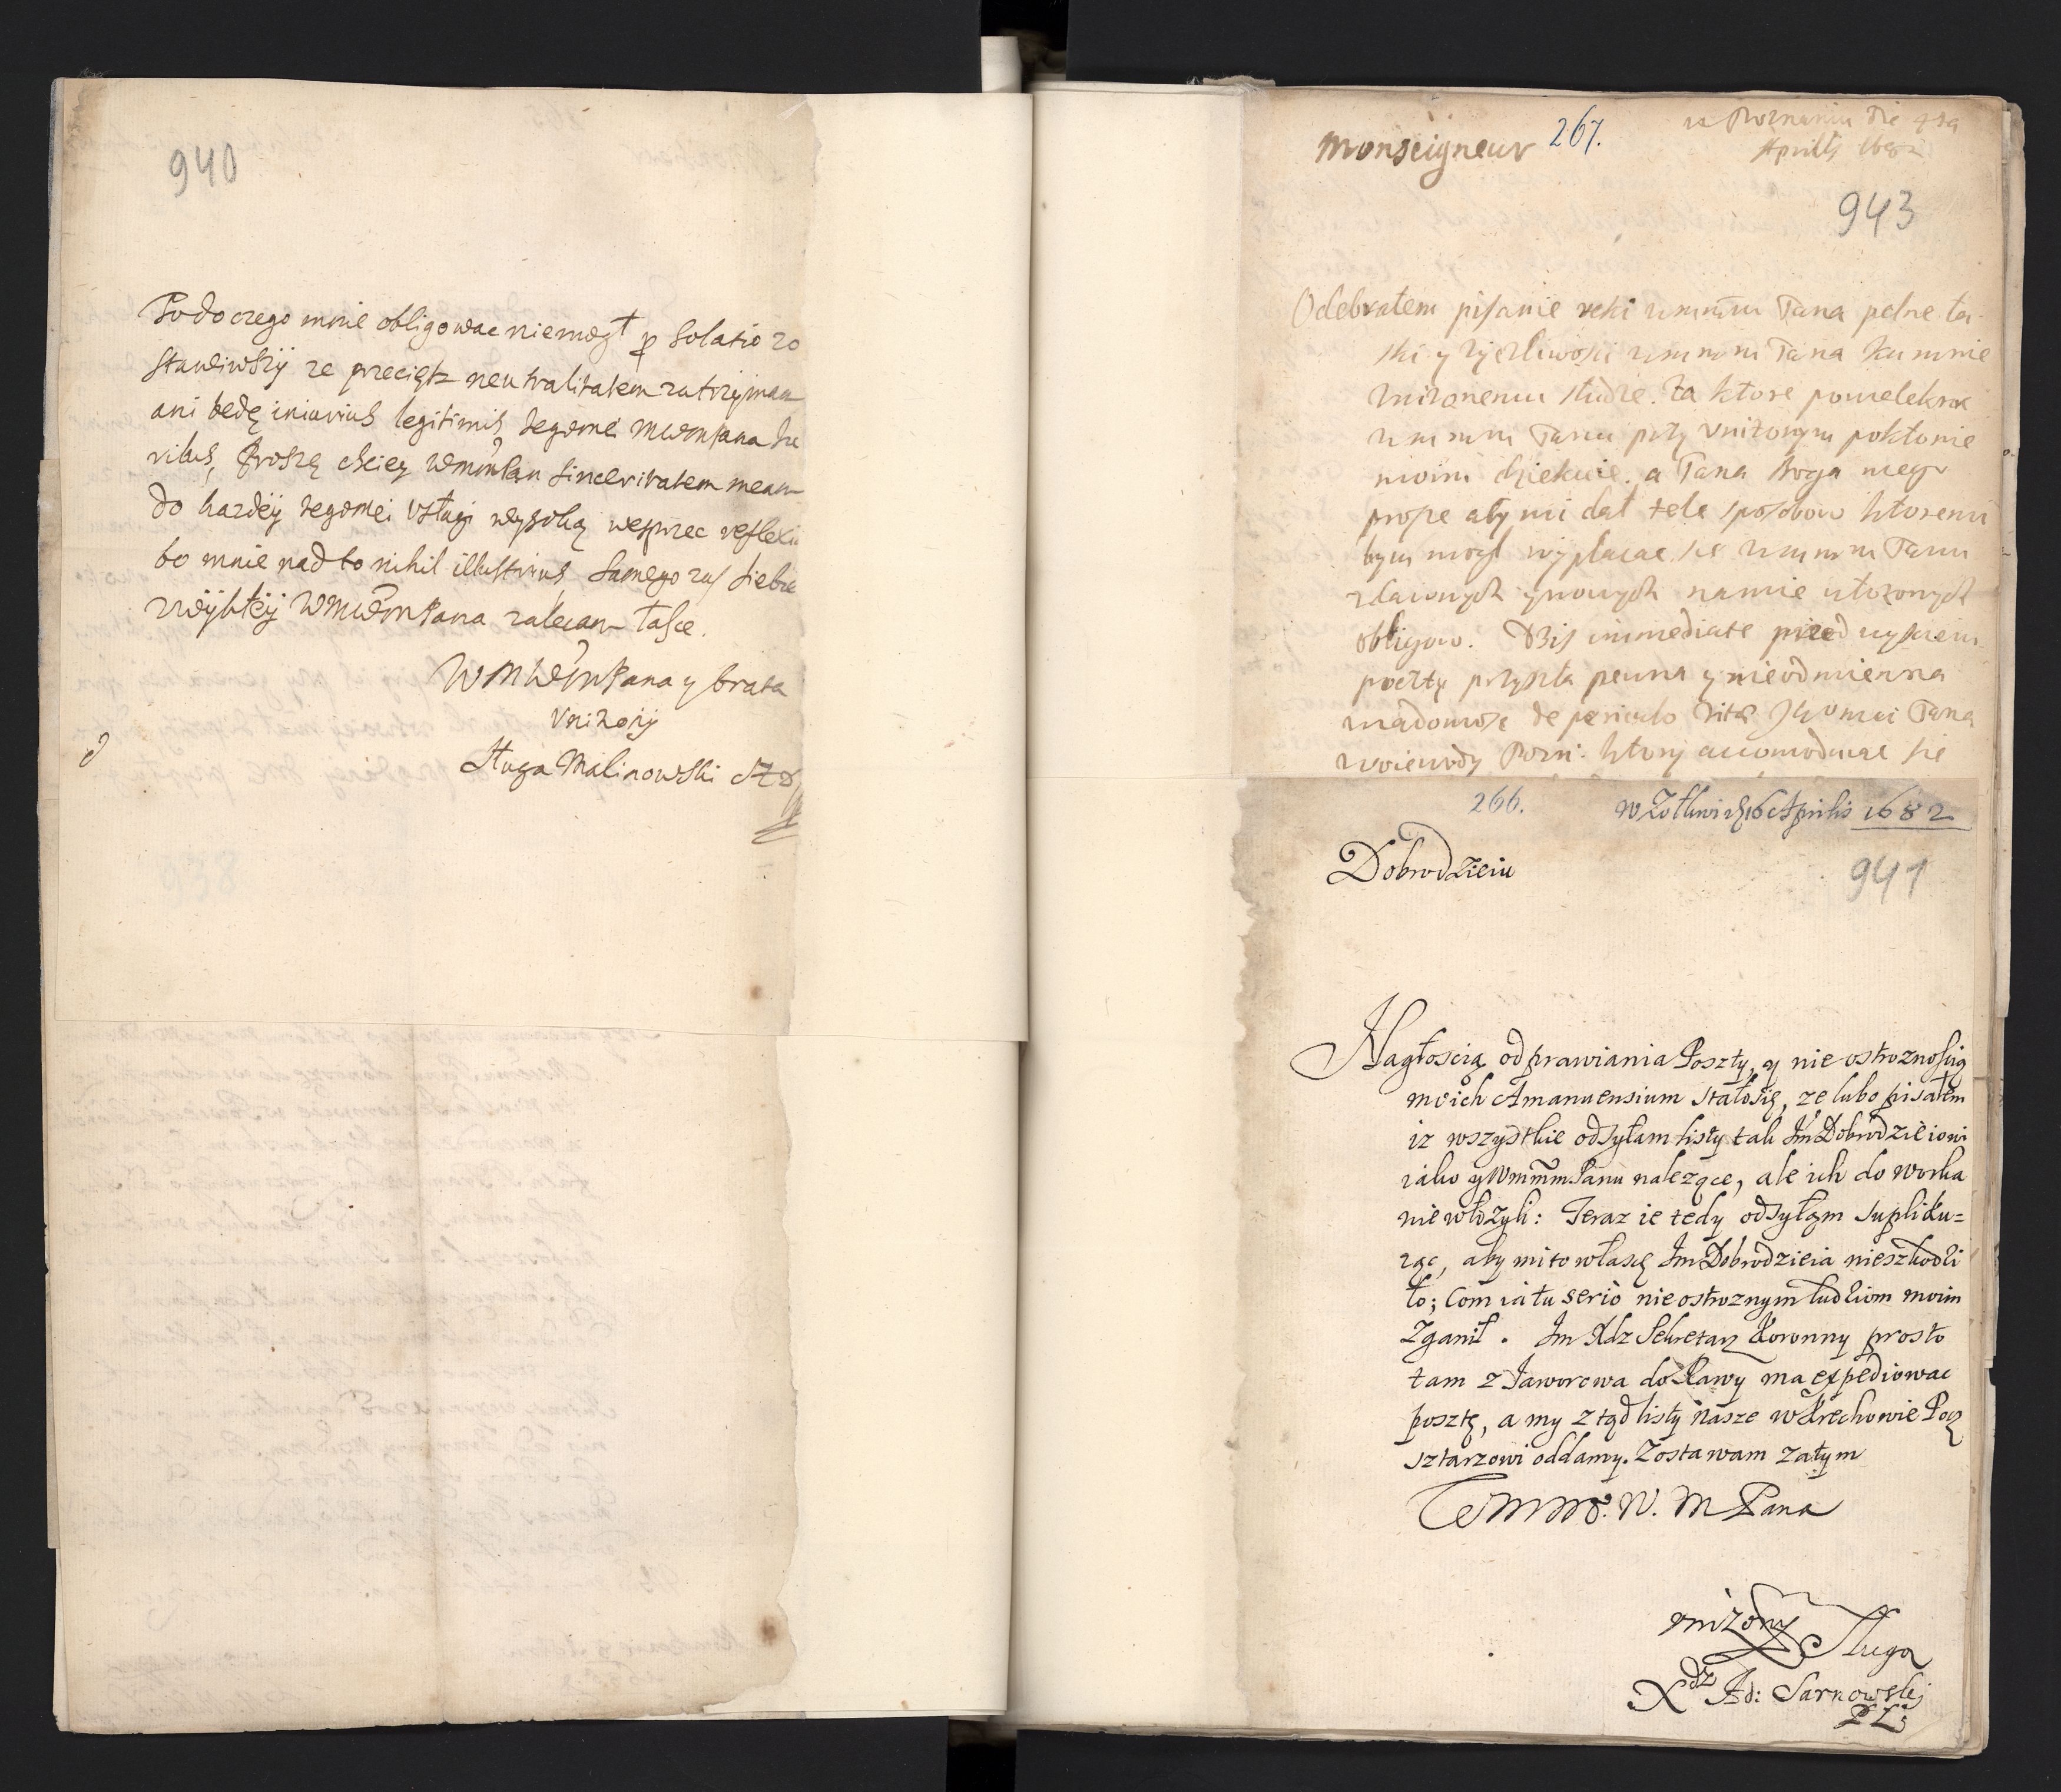 940
Po do czego mnie obligowac niemogł p solatio zo
stawiwszÿ ze przecięz neutralitatem zatrzÿmam
ani bedę iniurius legitimis Jegomci MWMPana Iu
ribus, Proszę chciey WMMPan sinceritatem meam
do kazdeÿ Jegomci usługi wysoką wesprzec reflexią
bo mnie nad to nihil illustrius, samego zas siebie
zwÿkłeÿ WMMPana zalecam łasce.
WMMPana y brata
Vnizonÿ
Sługa Malinowski
Monseigneur 267.
w Poznaniu Die
Aprilis 1682
943
Odebrałem pisanie reki Pana pełne ła
ski y zyczliwosci Pana ku mnie
unizonemu słudze. za ktore powielekroc
Panu przy unizonym pokłonie
moim dziekuie. a Pana Boga mego
prosze aby mi dał tele sposobow ktoremi
bym mogł wypłacac sie Panu
z dawnych y nowych na mie włozonych
obligow. Dzis immediate przed wysciem
poczty przyszła pewna y nieodmienna
wiadomosc de periculo vitæ Jeomci Pana
woiewody Pozn: ktory accomodował sie
266. w Zołkwi d 16 Aprilis 1682
Dobrodzieiu
941
Nagłoscią odprawiania Poszty, y nie ostroznoscią
moich Amanuensium stałosię, ze lubo pisałem
iz wszystkie odsyłam listy tak Jm Dobrodzieiowi
iako y Wmmm Panu nalezące, ale ich do worka
nie włozyli: Teraz ie tedy odsyłam supliku=
iąc, aby mi to w łasce Jm Dobrodzieia nieszkodzi
ło; Com ia tu serio nieostroznym ludziom moim
Zganił. Jm Xdz Sekretarz Koronny prosto
tam z Jaworowa do Rawy ma expediowac
posztę, a my ztąd listy nasze w Krechowie Pocz
sztarzowi oddamy. Zostawam zatym
W. M Pana
vnizony Sługa
Xdz Ad: Sarnowskj